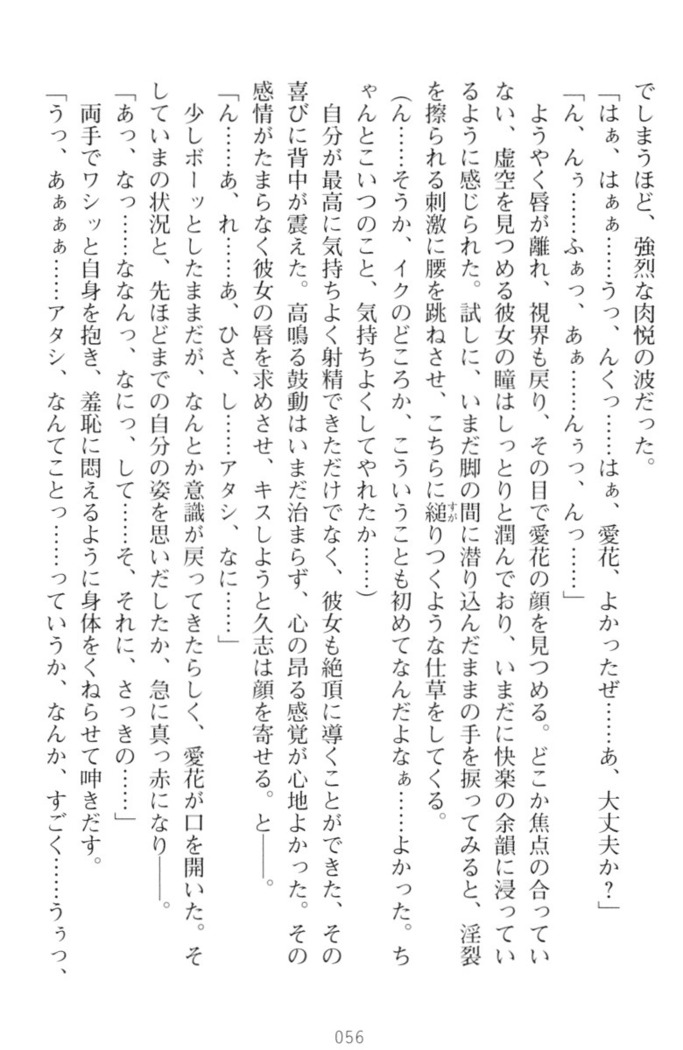 でしまうほど、強烈な肉悦の波だった。
「はぁ、はぁぁ……うっ、んくっ……はぁ、愛花、よかったぜ……あ、大丈夫か？」
「ん、んぅ……ふぁっ、あぁ……んぅっ、んっ……」
　ようやく唇が離れ、視界も戻り、その目で愛花の顔を見つめる。どこか焦点の合ってい
ない、虚空を見つめる彼女の瞳はしっとりと潤んでおり、いまだに快楽の余韻に浸ってい
るように感じられた。試しに、いまだ脚の間に潜り込んだままの手を捩ってみると、淫裂
を擦られる刺激に腰を跳ねさせ、こちらに縋すがりつくような仕草をしてくる。
（ん……そうか、イクのどころか、こういうことも初めてなんだよなぁ……よかった。ち
ゃんとこいつのこと、気持ちよくしてやれたか……）
　自分が最高に気持ちよく射精できただけでなく、彼女も絶頂に導くことができた、その
喜びに背中が震えた。高鳴る鼓動はいまだ治まらず、心の昂る感覚が心地よかった。その
感情がたまらなく彼女の唇を求めさせ、キスしようと久志は顔を寄せる。と――。
「ん……あ、れ……あ、ひさ、し……アタシ、なに……」
　少しボーッとしたままだが、なんとか意識が戻ってきたらしく、愛花が口を開いた。そ
していまの状況と、先ほどまでの自分の姿を思いだしたか、急に真っ赤になり――。
「あっ、なっ……ななんっ、なにっ、して……そ、それに、さっきの……」
　両手でワシッと自身を抱き、羞恥に悶えるように身体をくねらせて呻きだす。
「うっ、あぁぁぁ……アタシ、なんてことっ……っていうか、なんか、すごく……うぅっ、
056